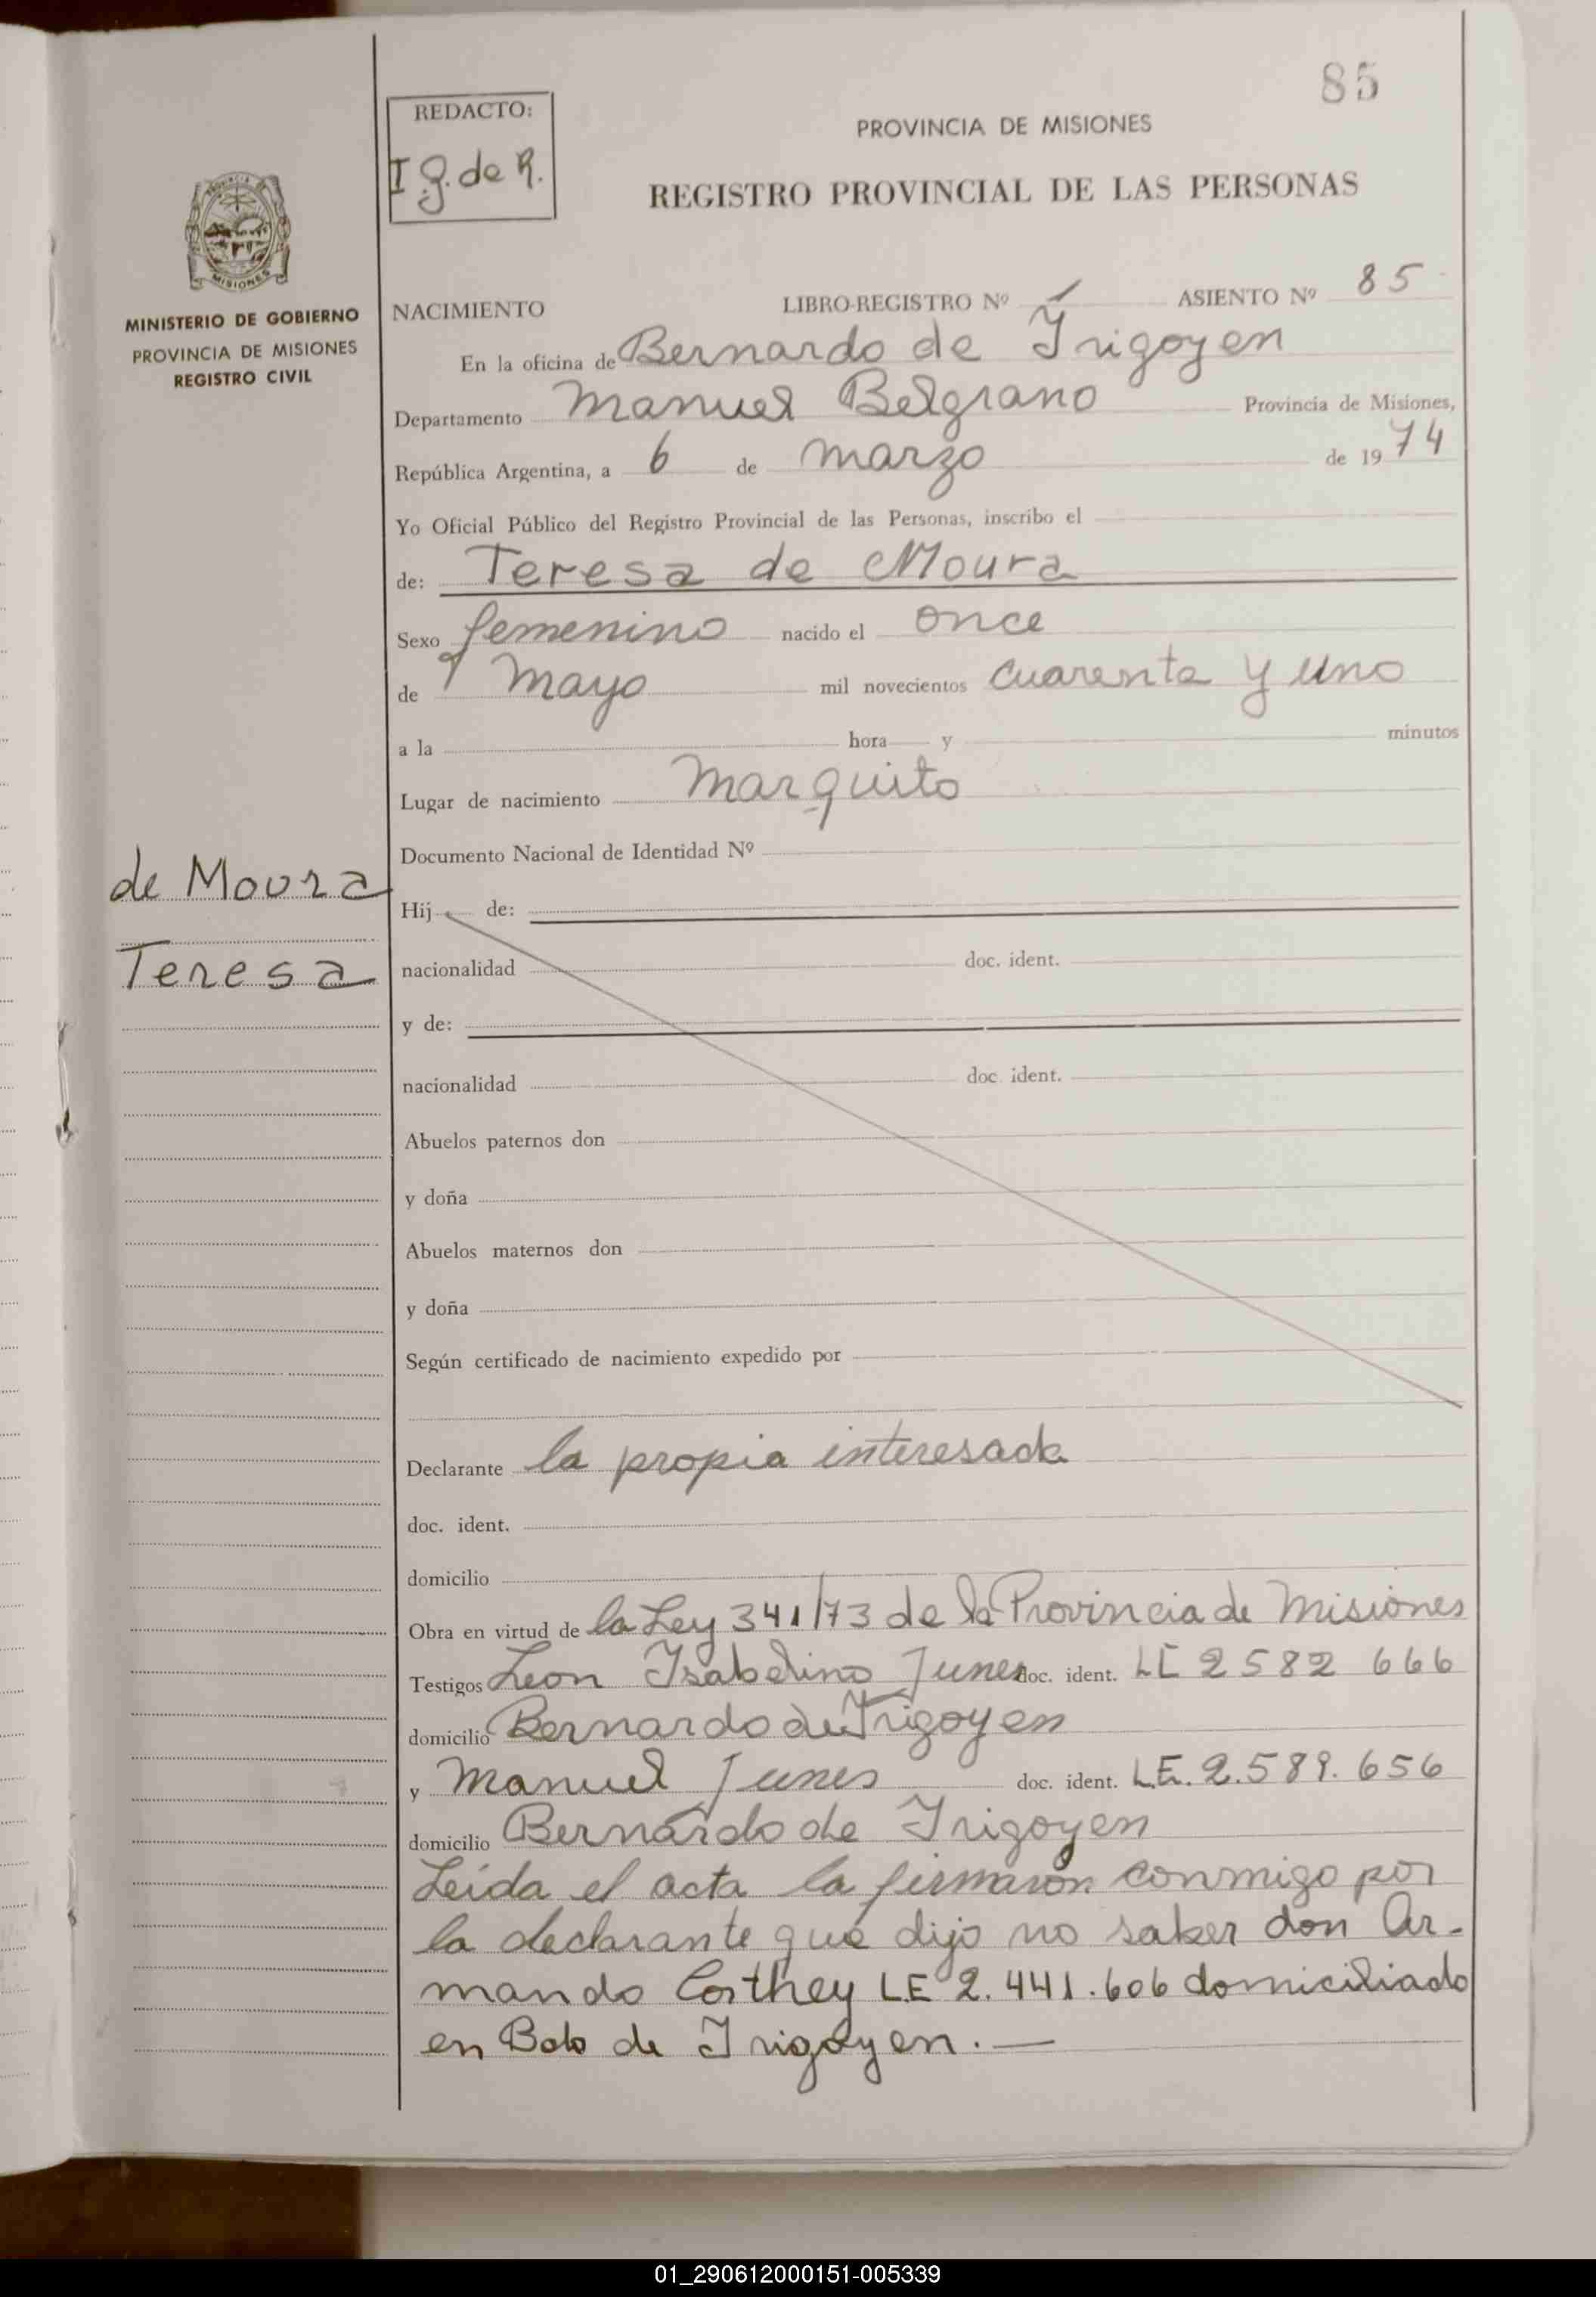 85
REDACTO:
I g. de R.
PROVINCIA DE MISIONES
REGISTRO PROVINCIAL DE LAS PERSONAS
MISIONES
MINISTERIO DE GOBIERNO
PROVINCIA DE MISIONES
REGISTRO CIVIL
NACIMIENTO LIBRO-REGISTRO Nº 1 ASIENTO Nº 85
En la oficina de Bernardo de Irigoyen
Departamento Manuel Belgrano Provincia de Misiones,
República Argentina, a 6 de marzo de 1974
Yo Oficial Público del Registro Provincial de las Personas, inscribo el
de: Teresa de Moura
Sexo femenino nacido el once
de mayo mil novecientos cuarenta y uno
a la hora y minutos
Lugar de nacimiento Marquito
Documento Nacional de Identidad Nº
de Moura
Hij de:
Teresa
nacionalidad doc. ident.
y de:
nacionalidad doc. ident.
Abuelos paternos don
y doña
Abuelos maternos don
y doña
Según certificado de nacimiento expedido por
Declarante la propia interesada
doc. ident.
domicilio
Obra en virtud de la Ley 341/73 de la Provincia de Misiones
Testigos Leon Isabelino Junes doc. ident. LE 2582 666
domicilio Bernardo de Irigoyen
y Manuel Junes doc. ident. L.E. 2.589.656
domicilio Bernardo de Irigoyen
Leída el acta la firmaron conmigo por
la declarante que dijo no saber don Ar-
mando Corthey LE 2.441.606 domiciliado
en Bdo de Irigoyen.—
01_290612000151-005339